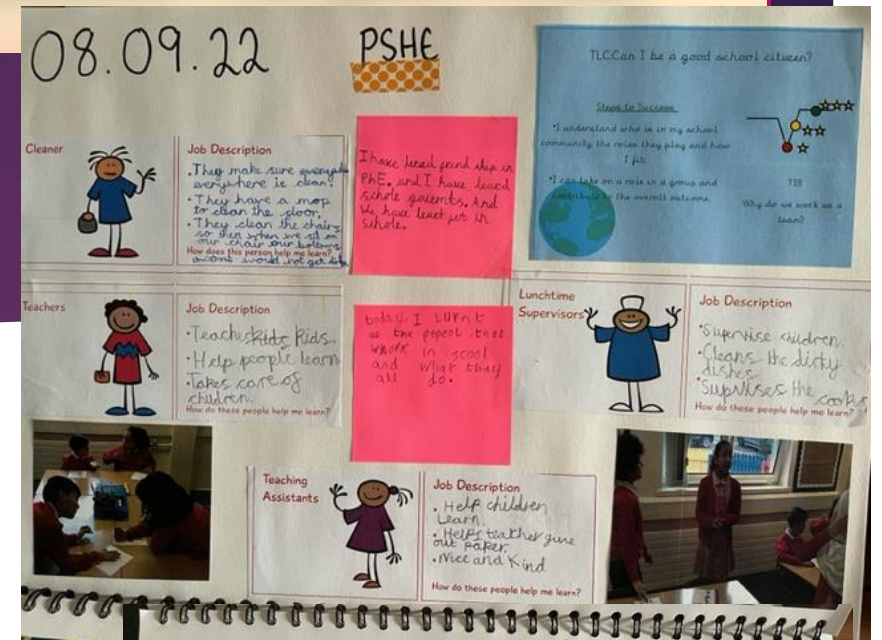 08.09.22
PSHE
TLC:Can I be a good school citizen?
Steps to Success
•I understand who is in my school
community the roles they play and how
I fit.
•I can take on a role in a group and
contribute to the overall outcome.
TIB
Why do we work as a
team?
Cleaner
Job Description
•They make sure
everywhere is clean.
•They have a mop
to clean the floor,
•They clean the chairs
so then when we sit on
our chair our bottoms
How does this person help me learn?
would not get
I have
PhE. and I have leard
schole
We have leart
schole.
Teachers
Job Description
•Teaches kids.
•Help people learn
•Takes care of
children.
How do these people help me learn?
today I lurnt
the pepeol that
work in scool
and what they
all do.
Lunchtime
Supervisors
Job Description
•Supervise children.
•Cleans the dirty
dishes
•Suprvises the cooks
How do these people help me learn?
Teaching
Assistants
Job Description
• Help children
Learn.
• Helps teacher give
out paper.
•Nice and Kind
How do these people help me learn?